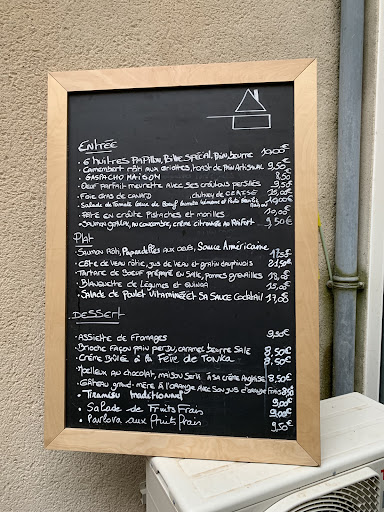 ENTRÉE
• 6 huitres PAPILLON, Bille SPÉCIAL, Pain, beurre 10,00€
• Camembert rôti aux aromates, toast de Pain Artisanal 9,50€
• GASPACHO MAISON 8,50
• Oeuf parfait meurette avec ses croûtons persillés 9,50€
• Foie Gras de canard chutney de CERISE 15,00€
• Salade de Tomate coeur de Boeuf
• Pâté en croûte Pistaches et morilles 10,00€
• Saumon gravlax, au concombre, crème citronnée au Raifort 9,50€
Plat
Saumon rôti, Papardelles aux cèpes, Sauce Américaine
• Côte de veau rôtie, jus de veau et gratin dauphinois 21,50€
• Tartare de Boeuf préparé en salle, pommes grenailles 18,00€
• Blanquette de Légumes et quinoa 15,00€
• Salade de Poulet Vitaminée et sa sauce Cocktail 17,00
DESSERT
• ASSIETTE de Fromages 9,50€
• Brioche façon pain perdu, caramel beurre Salé 8,50€
• Crème Brûlée à la Fève de Tonka 8,50€
• Moelleux au chocolat, maison servi à sa crème Anglaise 8,50€
• Gâteau grand-mère à l'orange avec son jus d'orange frais 8,50
• Tiramisu traditionnel 9,00€
• Salade de Fruits Frais 9,00€
• Pavlova aux fruits frais 9,50€